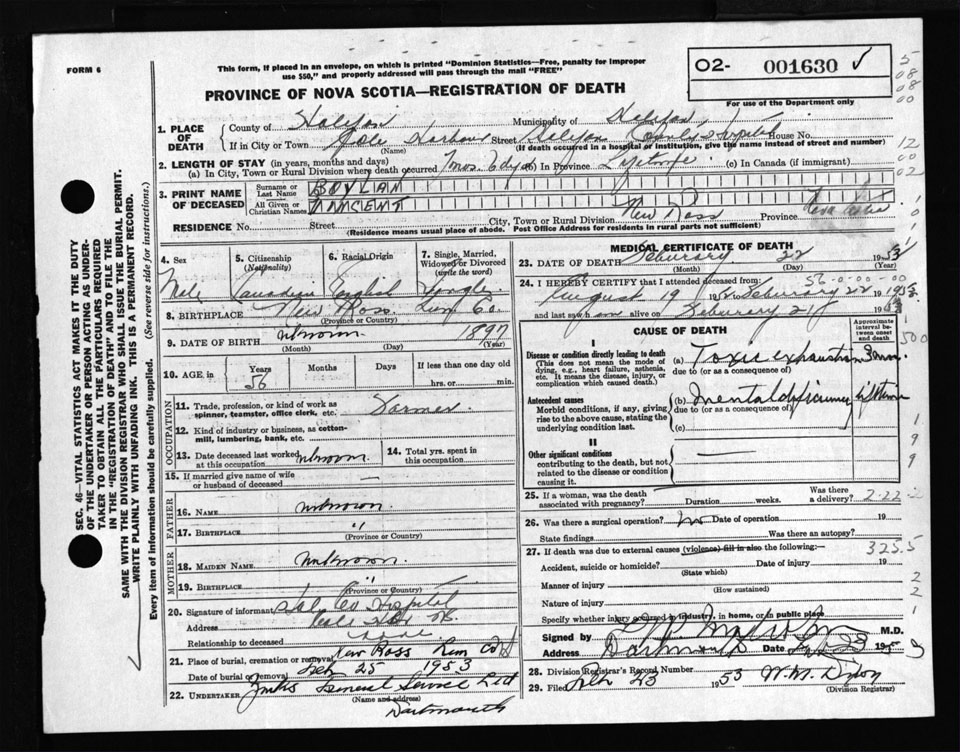 FORM 6
This form, if placed in an envelope, on which is printed "Dominion Statistics—Free, penalty for improper
use $50," and properly addressed will pass through the mail "FREE"
PROVINCE OF NOVA SCOTIA—REGISTRATION OF DEATH
O2- 001630 ✓
For use of the Department only
5
08
08
00
12
00
02
SEC. 46—VITAL STATISTICS ACT MAKES IT THE DUTY
OF THE UNDERTAKER OR PERSON ACTING AS UNDER-
TAKER TO OBTAIN ALL THE PARTICULARS REQUIRED
IN THE "REGISTRATION OF DEATH" AND TO FILE THE
SAME WITH THE DIVISION REGISTRAR WHO SHALL ISSUE THE BURIAL PERMIT.
WRITE PLAINLY WITH UNFADING INK. THIS IS A PERMANENT RECORD.
Every item of information should be carefully supplied. (See reverse side for instructions.)
1. PLACE OF DEATH
County of Halifax Municipality of Halifax
If in City or Town Cole Harbour Street Halifax County Hospital House No.
(Name) (If death occurred in a hospital or institution, give the name instead of street and number)
2. LENGTH OF STAY (in years, months and days)
(a) In City, Town or Rural Division where death occurred 7 mos. 6 dys (b) In Province Lifetime (c) In Canada (if immigrant)
3. PRINT NAME OF DECEASED
Surname or Last Name BOYLAN
All Given or Christian Names VINCENT
RESIDENCE No. Street City, Town or Rural Division New Ross Province Nova Scotia
(Residence means usual place of abode. Post Office Address for residents in rural parts not sufficient)
4. Sex 5. Citizenship (Nationality) 6. Racial Origin 7. Single, Married, Widowed or Divorced (write the word)
Male Canadian English Single
8. BIRTHPLACE New Ross Lun. Co.
(Province or Country)
9. DATE OF BIRTH unknown 1897
(Month) (Day) (Year)
10. AGE in Years Months Days If less than one day
56 hrs. or min.
OCCUPATION
11. Trade, profession, or kind of work as spinner, teamster, office clerk, etc. Farmer
12. Kind of industry or business, as cotton-mill, lumbering, bank, etc.
13. Date deceased last worked at this occupation unknown
14. Total yrs. spent in this occupation
15. If married give name of wife or husband of deceased
FATHER
16. NAME unknown
17. BIRTHPLACE "
(Province or Country)
MOTHER
18. MAIDEN NAME unknown
19. BIRTHPLACE "
(Province or Country)
20. Signature of informant Hal Co Hospital
Address Cole Hbr
Relationship to deceased
21. Place of burial, cremation or removal New Ross
Date of burial or removal Feb 25 1953
22. UNDERTAKER General Service Ltd
(Name and address)
Dartmouth
MEDICAL CERTIFICATE OF DEATH
23. DATE OF DEATH February 22 1953
(Month) (Day)
56-0-00-00
24. I HEREBY CERTIFY that I attended deceased from
August 19 1952 to February 22 1953
and last saw him alive on February 21
CAUSE OF DEATH
Approximate interval between onset and death
I
Disease or condition directly leading to death
(This does not mean the mode of dying, e.g., heart failure, asthenia, etc. It means the disease, injury, or complication which caused death.)
(a) Toxic exhaustion
due to (or as a consequence of)
Antecedent causes
Morbid conditions, if any, giving rise to the above cause, stating the underlying condition last.
(b) Mental deficiency lifetime
due to (or as a consequence of)
(c)
II
Other significant conditions
contributing to the death, but not related to the disease or condition causing it.
25. If a woman, was the death associated with pregnancy? Duration weeks. Was there a delivery? 2-22-2
26. Was there a surgical operation? no Date of operation 19
State findings Was there an autopsy?
27. If death was due to external causes (violence) fill in also the following:— 325.5
Accident, suicide or homicide? Date of injury 19
(State which)
Manner of injury
(How sustained)
Nature of injury
Specify whether injury occurred in industry, in home, or in public place
Signed by M.D.
Address Dartmouth 1953
28. Division Registrar's Record Number
29. Filed Feb 23 1953 W.M. Dixon
(Division Registrar)